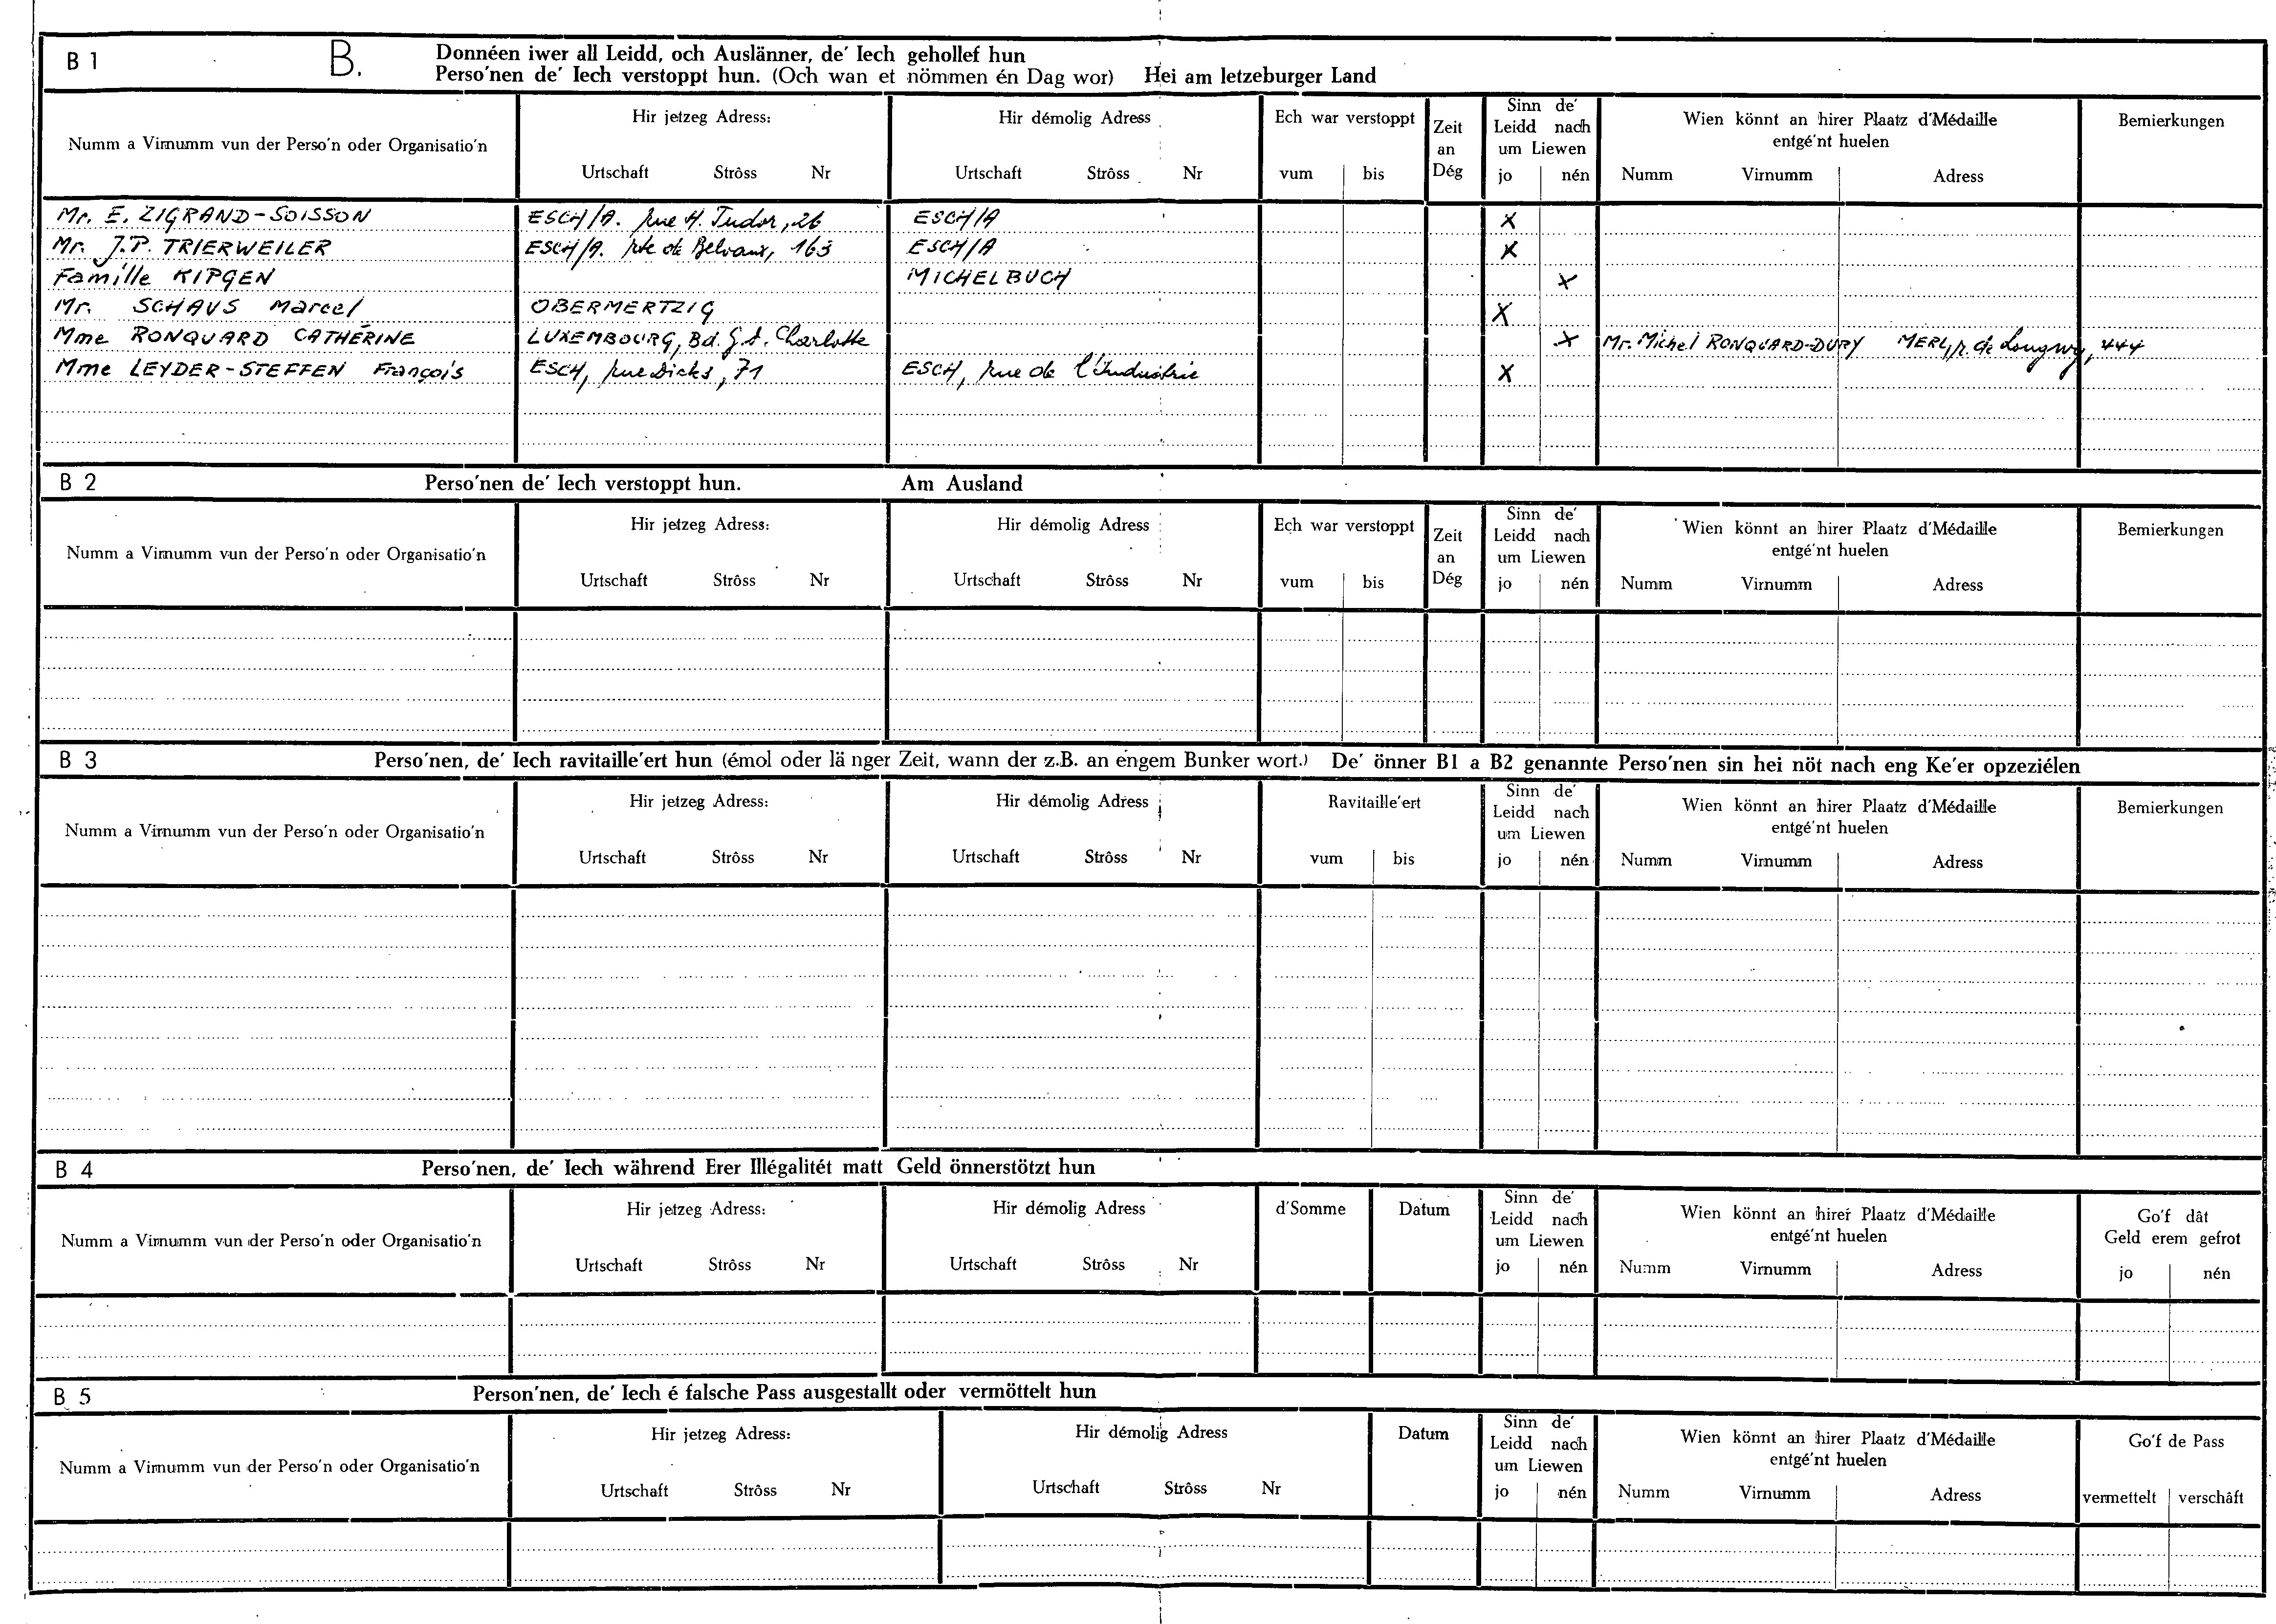 B 1 B. Donnéen iwer all Leidd, och Auslänner, de' Iech gehollef hun
Perso'nen de' Iech verstoppt hun. (Och wan et nömmen én Dag wor) Hei am letzeburger Land
Numm a Virnumm vun der Perso'n oder Organisatio'n
Hir jetzeg Adress:
Urtschaft Strôss Nr
Hir démolig Adress
Urtschaft Strôss Nr
Ech war verstoppt
vum bis
Zeit
an
Dég
Sinn de'
Leidd nach
um Liewen
jo nén
Wien könnt an hirer Plaatz d'Médaille
entgé'nt huelen
Numm Virnumm Adress
Bemierkungen
Mr. E. ZIGRAND-SOISSON ESCH/A. rue H. Tudor, 26 ESCH/A X
Mr. J.P. TRIERWEILER ESCH/A. rte de Belvaux, 163 ESCH/A X
Famille KIPGEN MICHELBUCH X
Mr. SCHAUS Marcel OBERMERTZIG X
Mme RONQUARD CATHÉRINE LUXEMBOURG, Bd. G.d. Charlotte X Mr. Michel RONQUARD-DURY MERL, r. de Longwy, 444
Mme LEYDER-STEFFEN François ESCH, rue Dicks, 71 ESCH, rue de l'Industrie X
B 2 Perso'nen de' Iech verstoppt hun. Am Ausland
Numm a Virnumm vun der Perso'n oder Organisatio'n
Hir jetzeg Adress:
Urtschaft Strôss Nr
Hir démolig Adress
Urtschaft Strôss Nr
Ech war verstoppt
vum bis
Zeit
an
Dég
Sinn de'
Leidd nach
um Liewen
jo nén
Wien könnt an hirer Plaatz d'Médaille
entgé'nt huelen
Numm Virnumm Adress
Bemierkungen
B 3 Perso'nen, de' Iech ravitaille'ert hun (émol oder länger Zeit, wann der z.B. an engem Bunker wort.) De' önner B1 a B2 genannte Perso'nen sin hei nöt nach eng Ke'er opzeziélen
Numm a Virnumm vun der Perso'n oder Organisatio'n
Hir jetzeg Adress:
Urtschaft Strôss Nr
Hir démolig Adress
Urtschaft Strôss Nr
Ravitaille'ert
vum bis
Sinn de'
Leidd nach
um Liewen
jo nén
Wien könnt an hirer Plaatz d'Médaille
entgé'nt huelen
Numm Virnumm Adress
Bemierkungen
B 4 Perso'nen, de' Iech während Erer Illégalitét matt Geld önnerstötzt hun
Numm a Virnumm vun der Perso'n oder Organisatio'n
Hir jetzeg Adress:
Urtschaft Strôss Nr
Hir démolig Adress
Urtschaft Strôss Nr
d'Somme
Datum
Sinn de'
Leidd nach
um Liewen
jo nén
Wien könnt an hirer Plaatz d'Médaille
entgé'nt huelen
Numm Virnumm Adress
Go'f dât
Geld erem gefrot
jo nén
B 5 Person'nen, de' Iech é falsche Pass ausgestallt oder vermöttelt hun
Numm a Virnumm vun der Perso'n oder Organisatio'n
Hir jetzeg Adress:
Urtschaft Strôss Nr
Hir démolig Adress
Urtschaft Strôss Nr
Datum
Sinn de'
Leidd nach
um Liewen
jo nén
Wien könnt an hirer Plaatz d'Médaille
entgé'nt huelen
Numm Virnumm Adress
Go'f de Pass
vermettelt verschâft